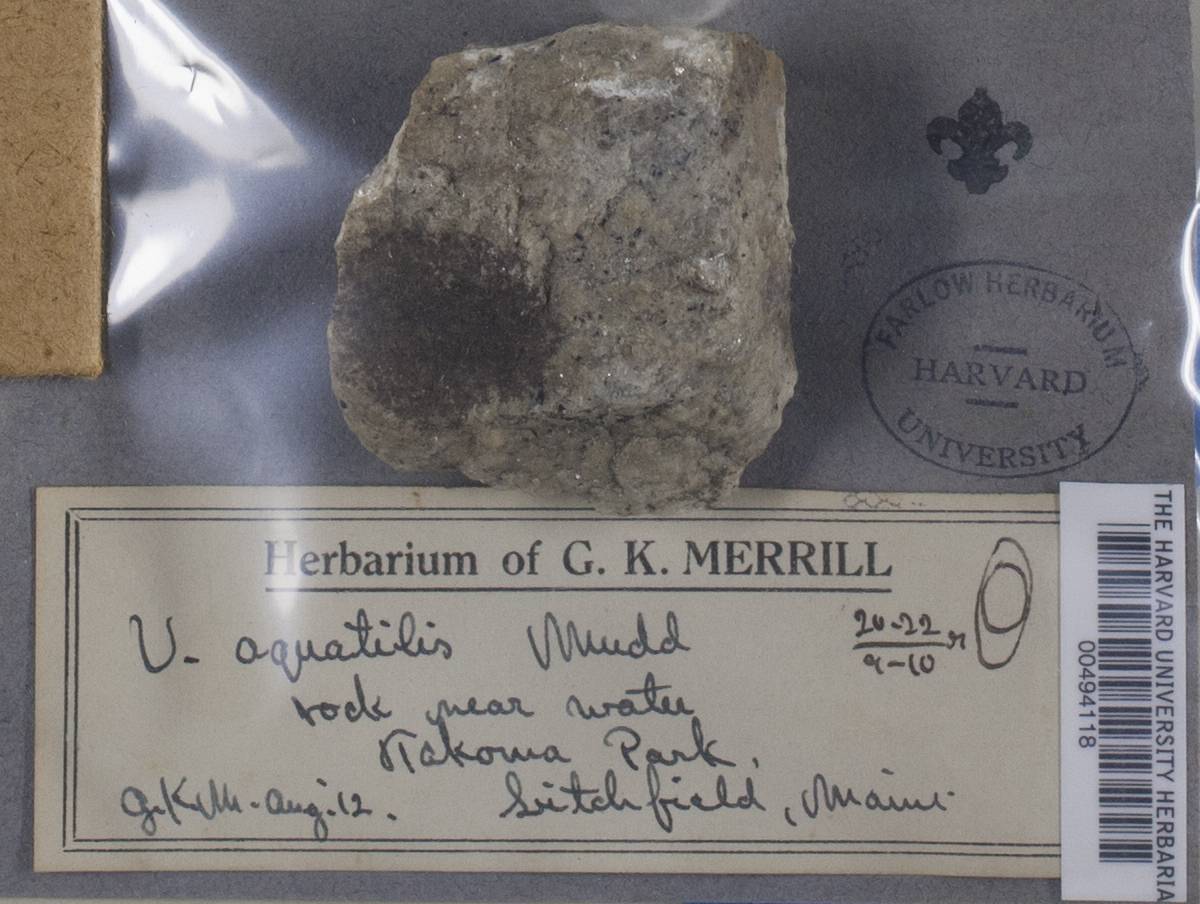 FARLOW HERBARIUM
HARVARD
UNIVERSITY
Herbarium of G. K. MERRILL
V. aquatilis Mudd
20-22
9-10
rock near water
Takoma Park,
G.K.M. Aug. 12. Litchfield, Maine
THE HARVARD UNIVERSITY HERBARIA
00494118